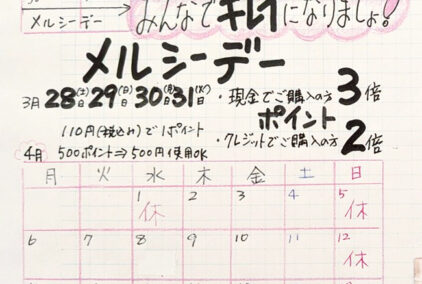 みんなでキレイになりましょ!
メルシーデー
メルシーデー
3月 28(土)日 29(日)日 30(月)日 31(火)日 ・現金でご購入の方 3倍
ポイント
110円(税込み)で1ポイント ・クレジットでご購入の方 2倍
4月 500ポイント⇒500円使用OK
月 火 水 木 金 土 日
1 2 3 4 5
休 休
6 7 8 9 10 11 12
休